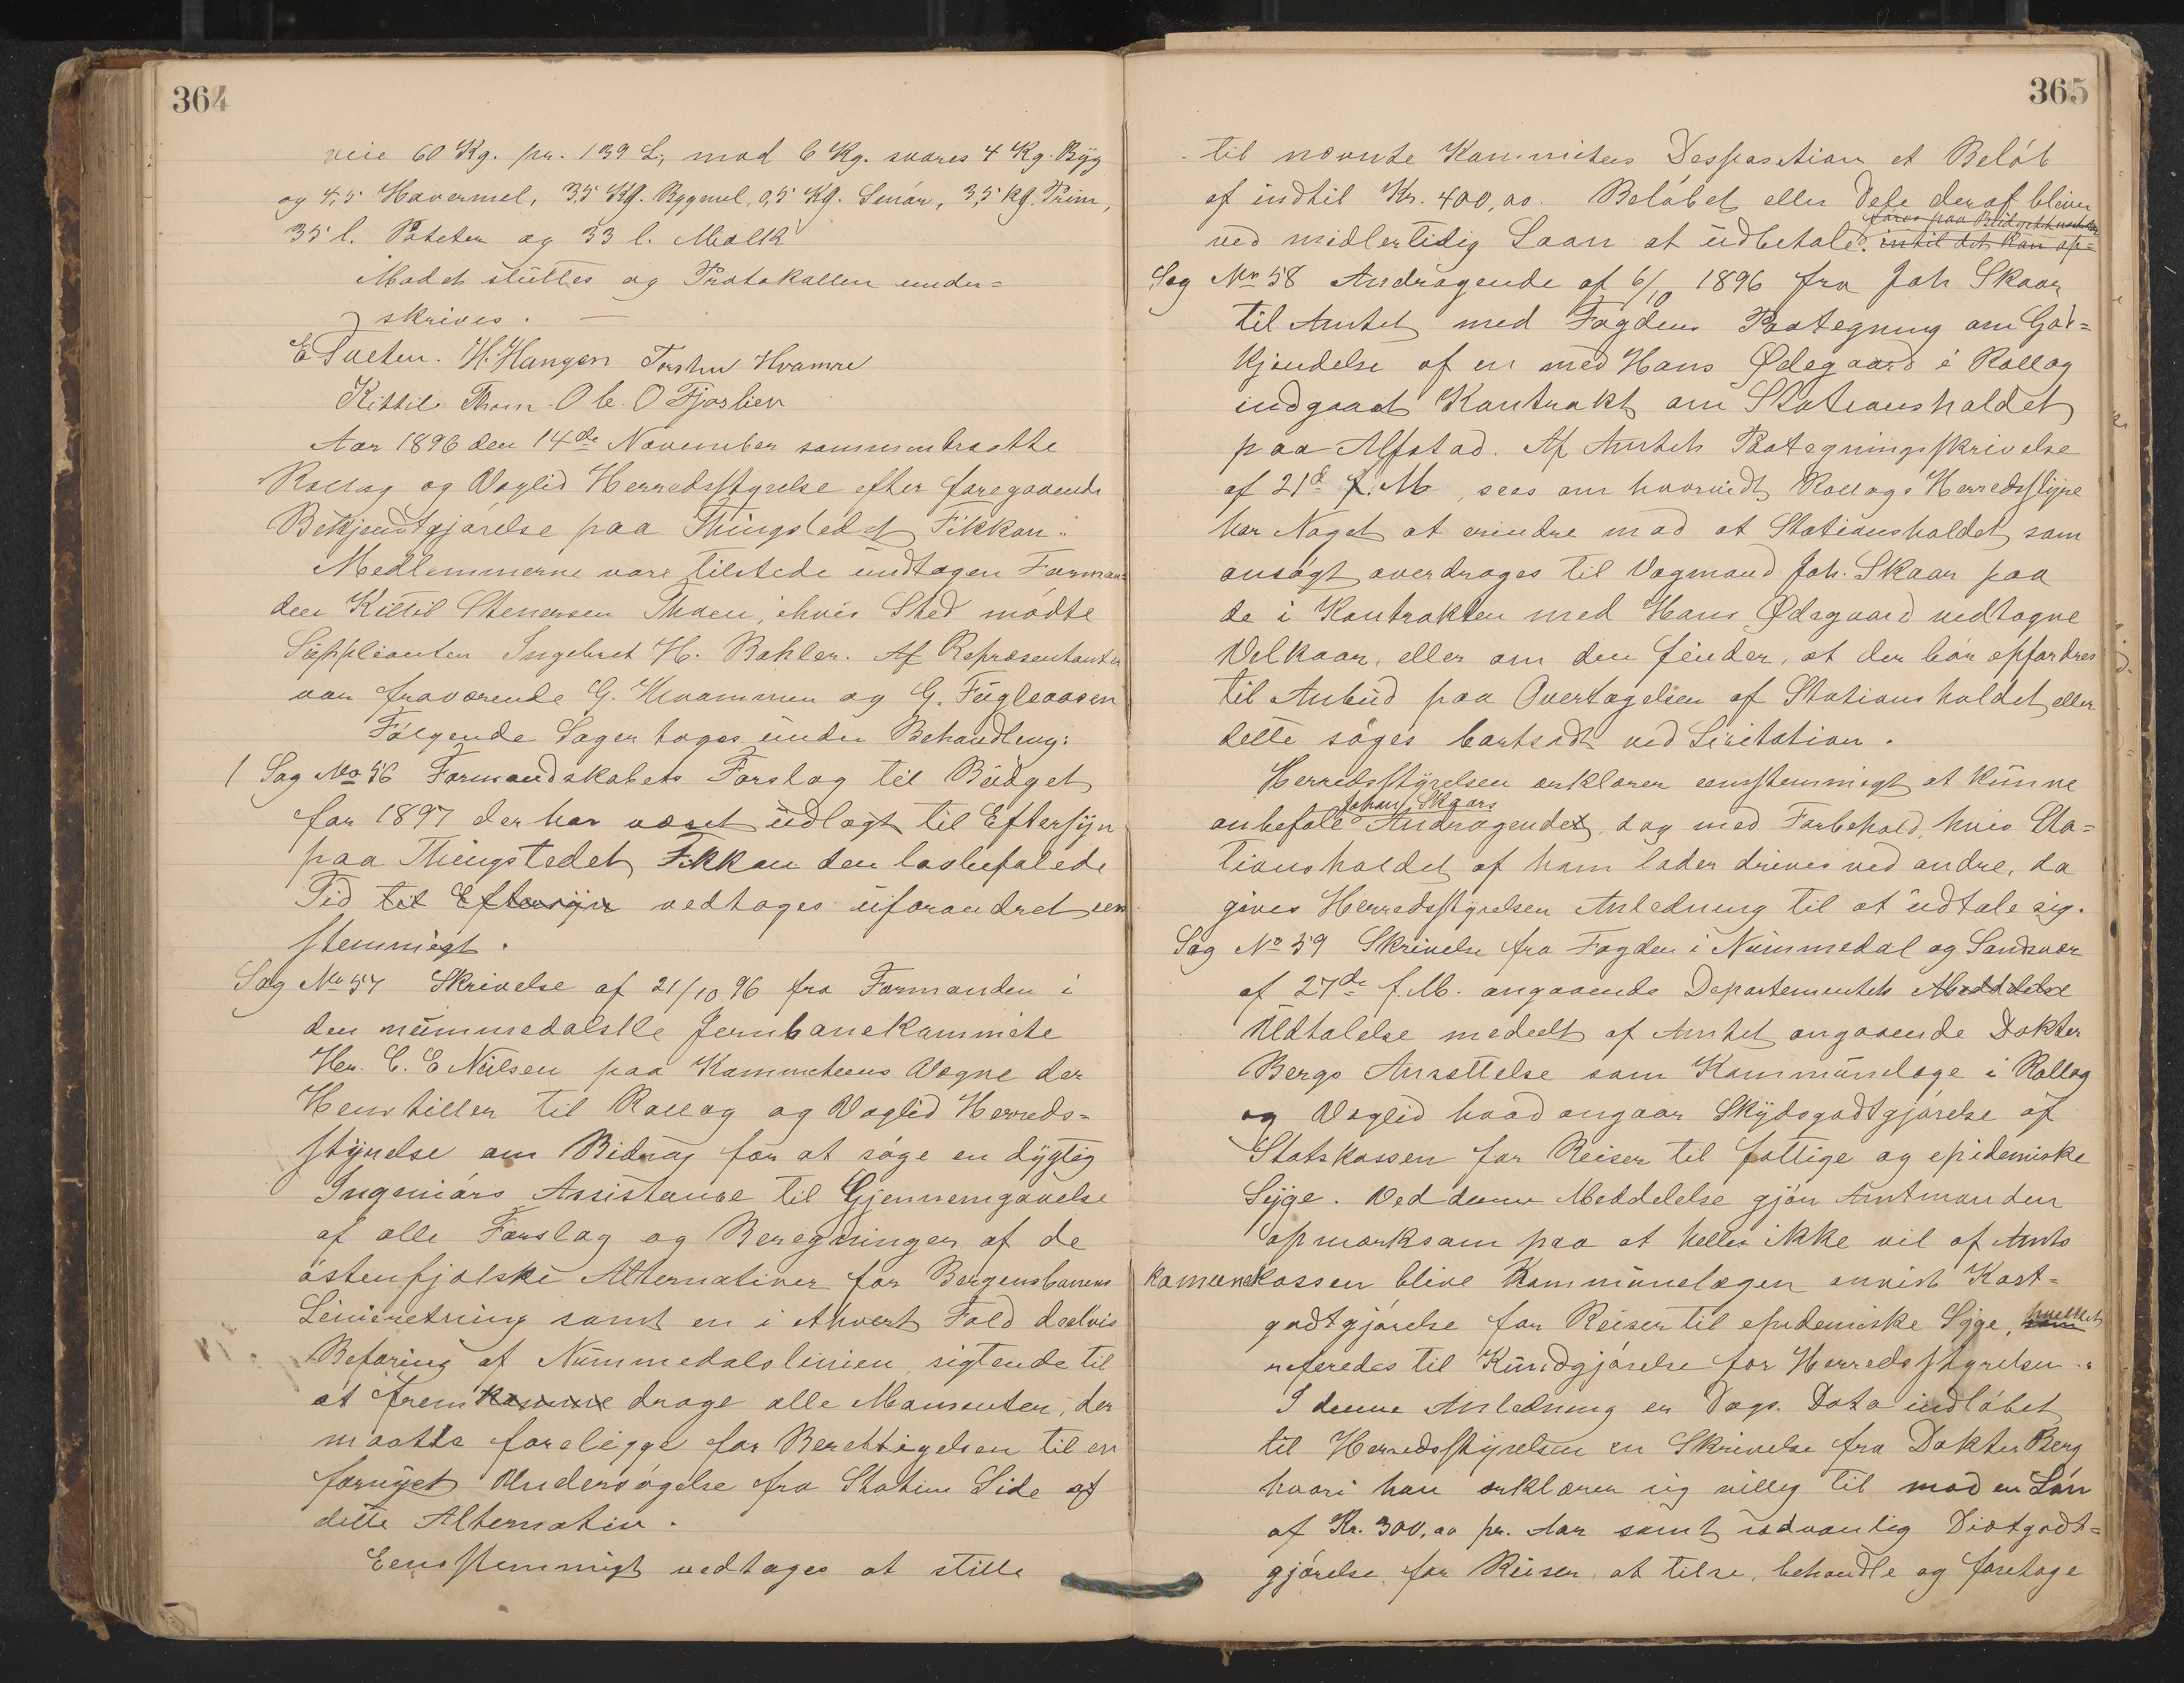 364
veie 60 Kg. pr. 139 L, mod 6 Kg. svares 4 Kg. Byg
og 4,5 Havermel, 3,5 Kg. Bygmel, 0,5 Kg. Smör, 3,5 kg. Prim,
35 l. Poteter og 33 l. Melk
Mödet sluttes og Protokollen under=
skrives. —
E Traaen. H. Haugen Torsten Hvamre
Kittil Thoen O C. O Fjøslien
Aar 1896 den 14de November sammentraadte
Rollag og Væglid Herredsstyrelse efter foregaaende
Bekjendtgjörelse paa Thingstedet Fikkan:
Medlemmerne vare tilstede undtagen Forman=
den Kittil Stenersen Thoen, i hvis Sted mödte
Supplianten Ingebret H. Bakler. Af Repræsentanter
var fraværende G. Kvammen og G. Fugleaasen
Fölgende Sager toges under Behandling:
1 Sag No 56 Formandskabets Forslag til Budget
for 1897 der har været udlagt til Eftersyn
paa Thingstedet Fikkan den lovbefalede
Tid til Eftersyn vedtoges uforandret een
stemmigt.
Sag No 57 Skrivelse af 21/10 96 fra Formanden i
den nummedalske Jernbanekommite
Her. C. E Nielsen paa Kommiteens Vegne der
Henstiller til Rollag og Væglid Herreds=
styrelse om Bidrag for at söge en dygtig
Ingeniörs Assistance til Gjennemgaaelse
af alle Forslag og Beregninger af de
östenfjelske Alternativer for Bergensbanens
Linieretning samt en i ethvert Fald deelvis
Befaring af Nummedalslinien, sigtende til
at fremkomme drage alle Momenter, der
maatte foreligge for Berettigelsen til en
fornyet Undersögelse fra Statens Side af
dette Alternativ.
Eensstemmigt vedtoges at stille
365
til nævnte Kommitees Desposition et Belöb
af indtil Kr. 400,00. Belöbet eller Dele deraf bliver
föres paa Budgettet
ved midlertidig Laan at udbetale. indtil det kan op=
Sag No 58 Andragende af 6/10 1896 fra Joh Skaar
til Amtet med Fogdens Paategning om God=
kjendelse af en med Hans Ødegaard i Rollag
indgaaet Kontrakt om Stationsholdet
paa Alfstad. Af Amtets Paategningsskrivelse
af 21d f. M, sees om hvorvidt Rollags Herredsstyre
har Noget at erindre mod at Stationsholdet som
ansögt overdrages til Vogmand Joh. Skaar paa
de i Kontrakten med Hans Ødegaard vedtagne
Vilkaar, eller om den finder, at der bör opfordres
til Anbud paa Overtagelsen af Stationsholdet, eller
dette söges bortsadt ved Licitation.
Herredsstyrelsen erklærer eenstemmigt at kunne
Johan Skaars
anbefale Andragendet, dog med Forbehold, hvis Sta=
tionsholdet af ham lader drives ved andre, da
gives Herredsstyrelsen Anledning til at udtale sig.
Sag No 59 Skrivelse fra Fogden i Nummedal og Sandsvær
af 27de f. M. angaaende Departementets Meddelelse
Udtalelse medeelt af Amtet angaaende Dokter
Bergs Ansættelse som Kommunelæge i Rollag
og Væglid hvad angaar Skydsgodtgjörelse af
Statskassen for Reiser til fattige og epidemiske
Syge. Ved denne Meddelelse gjör Amtmanden
opmærksom paa at heller ikke vil af Amts
komunekassen blive Kommunelægen anvist Kost=
godtgjörelse for Reiser til epidemiske Syge, som hvilket
referedes til Kundgjörelse for Herredsstyrelsen.
I denne Anledning er Dags. Dato indlöbet
til Herredsstyrelsen en Skrivelse fra Dokter Berg
hvori han erklærer sig villig til mod en Lön
af Kr. 300,00 pr. Aar samt sedvanlig Diætgodt=
gjörelse for Reiser, at tilse, behandle og foretage